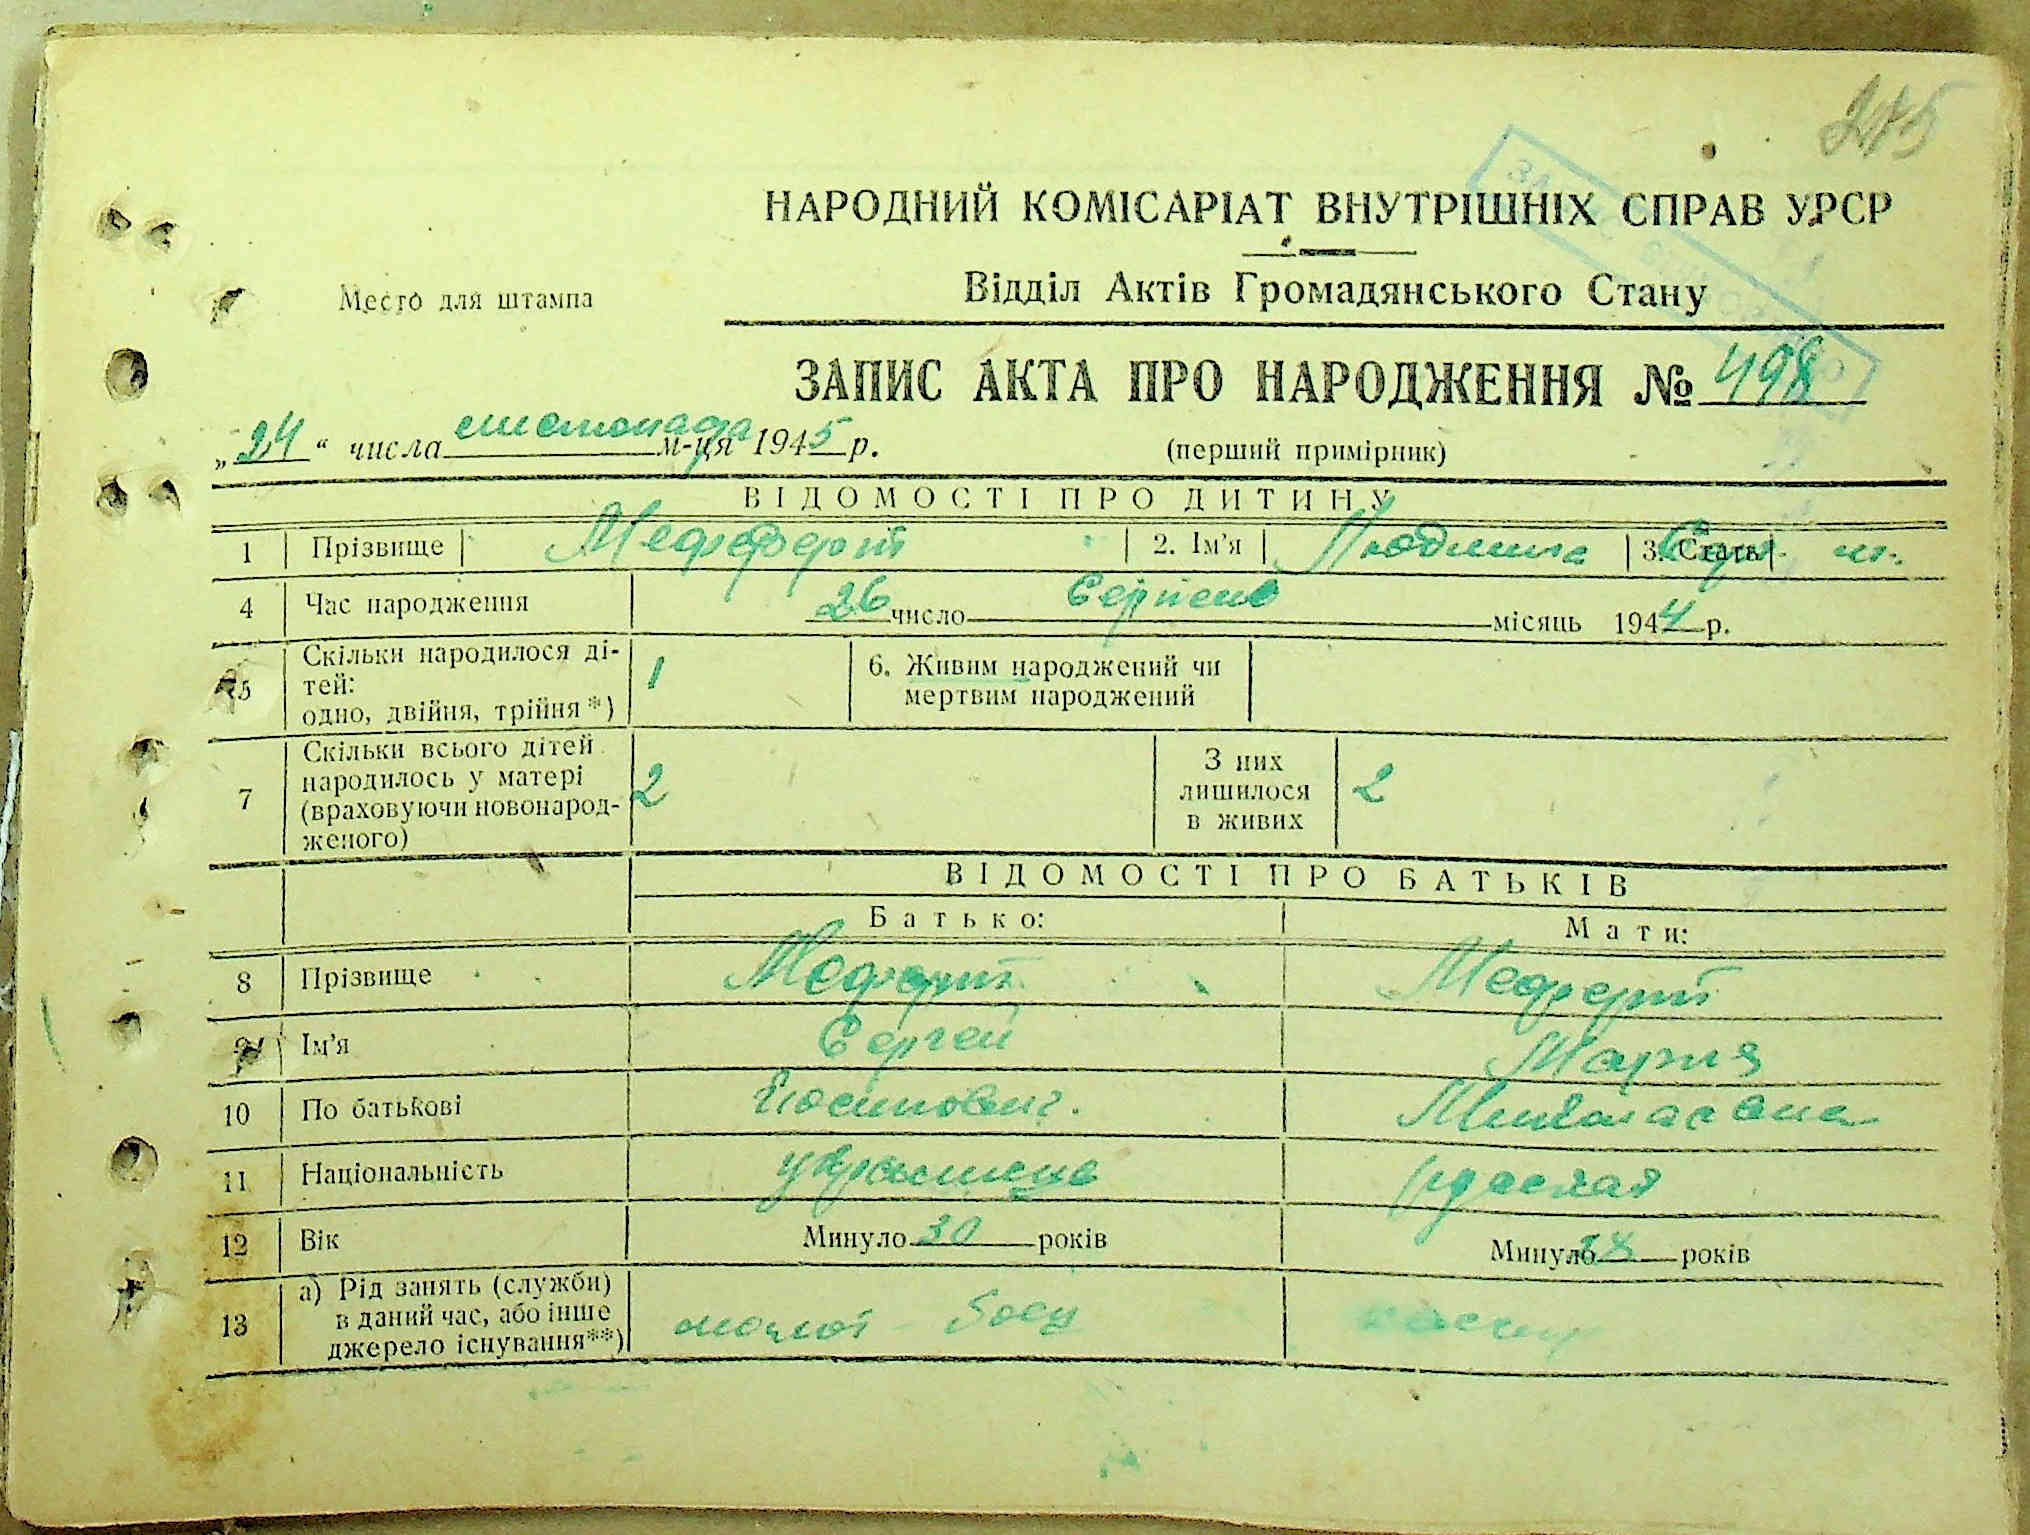 275
НАРОДНИЙ КОМІСАРІАТ ВНУТРІШНІХ СПРАВ УРСР
Место для штампа
Відділ Актів Громадянського Стану
ЗАПИС АКТА ПРО НАРОДЖЕННЯ № 498
„24“ числа листопада м-ця 1945 р. (перший примірник)
ВІДОМОСТІ ПРО ДИТИНУ
1 Прізвище 2. Ім'я Людмила 3. Стать
4 Час народження 26 число Серпень місяць 1944 р.
5 Скільки народилося ді-
тей:
одно, двійня, трійня*) 1
6. Живим народжений чи
мертвим народжений
7 Скільки всього дітей
народилось у матері
(враховуючи новонарод-
женого) 2
З них
лишилося
в живих 2
ВІДОМОСТІ ПРО БАТЬКІВ
Батько: Мати:
8 Прізвище
9 Ім'я Сергей Мария
10 По батькові
11 Національність
12 Вік Минуло 30 років Минуло років
13 а) Рід занять (служби)
в даний час, або інше
джерело існування**)